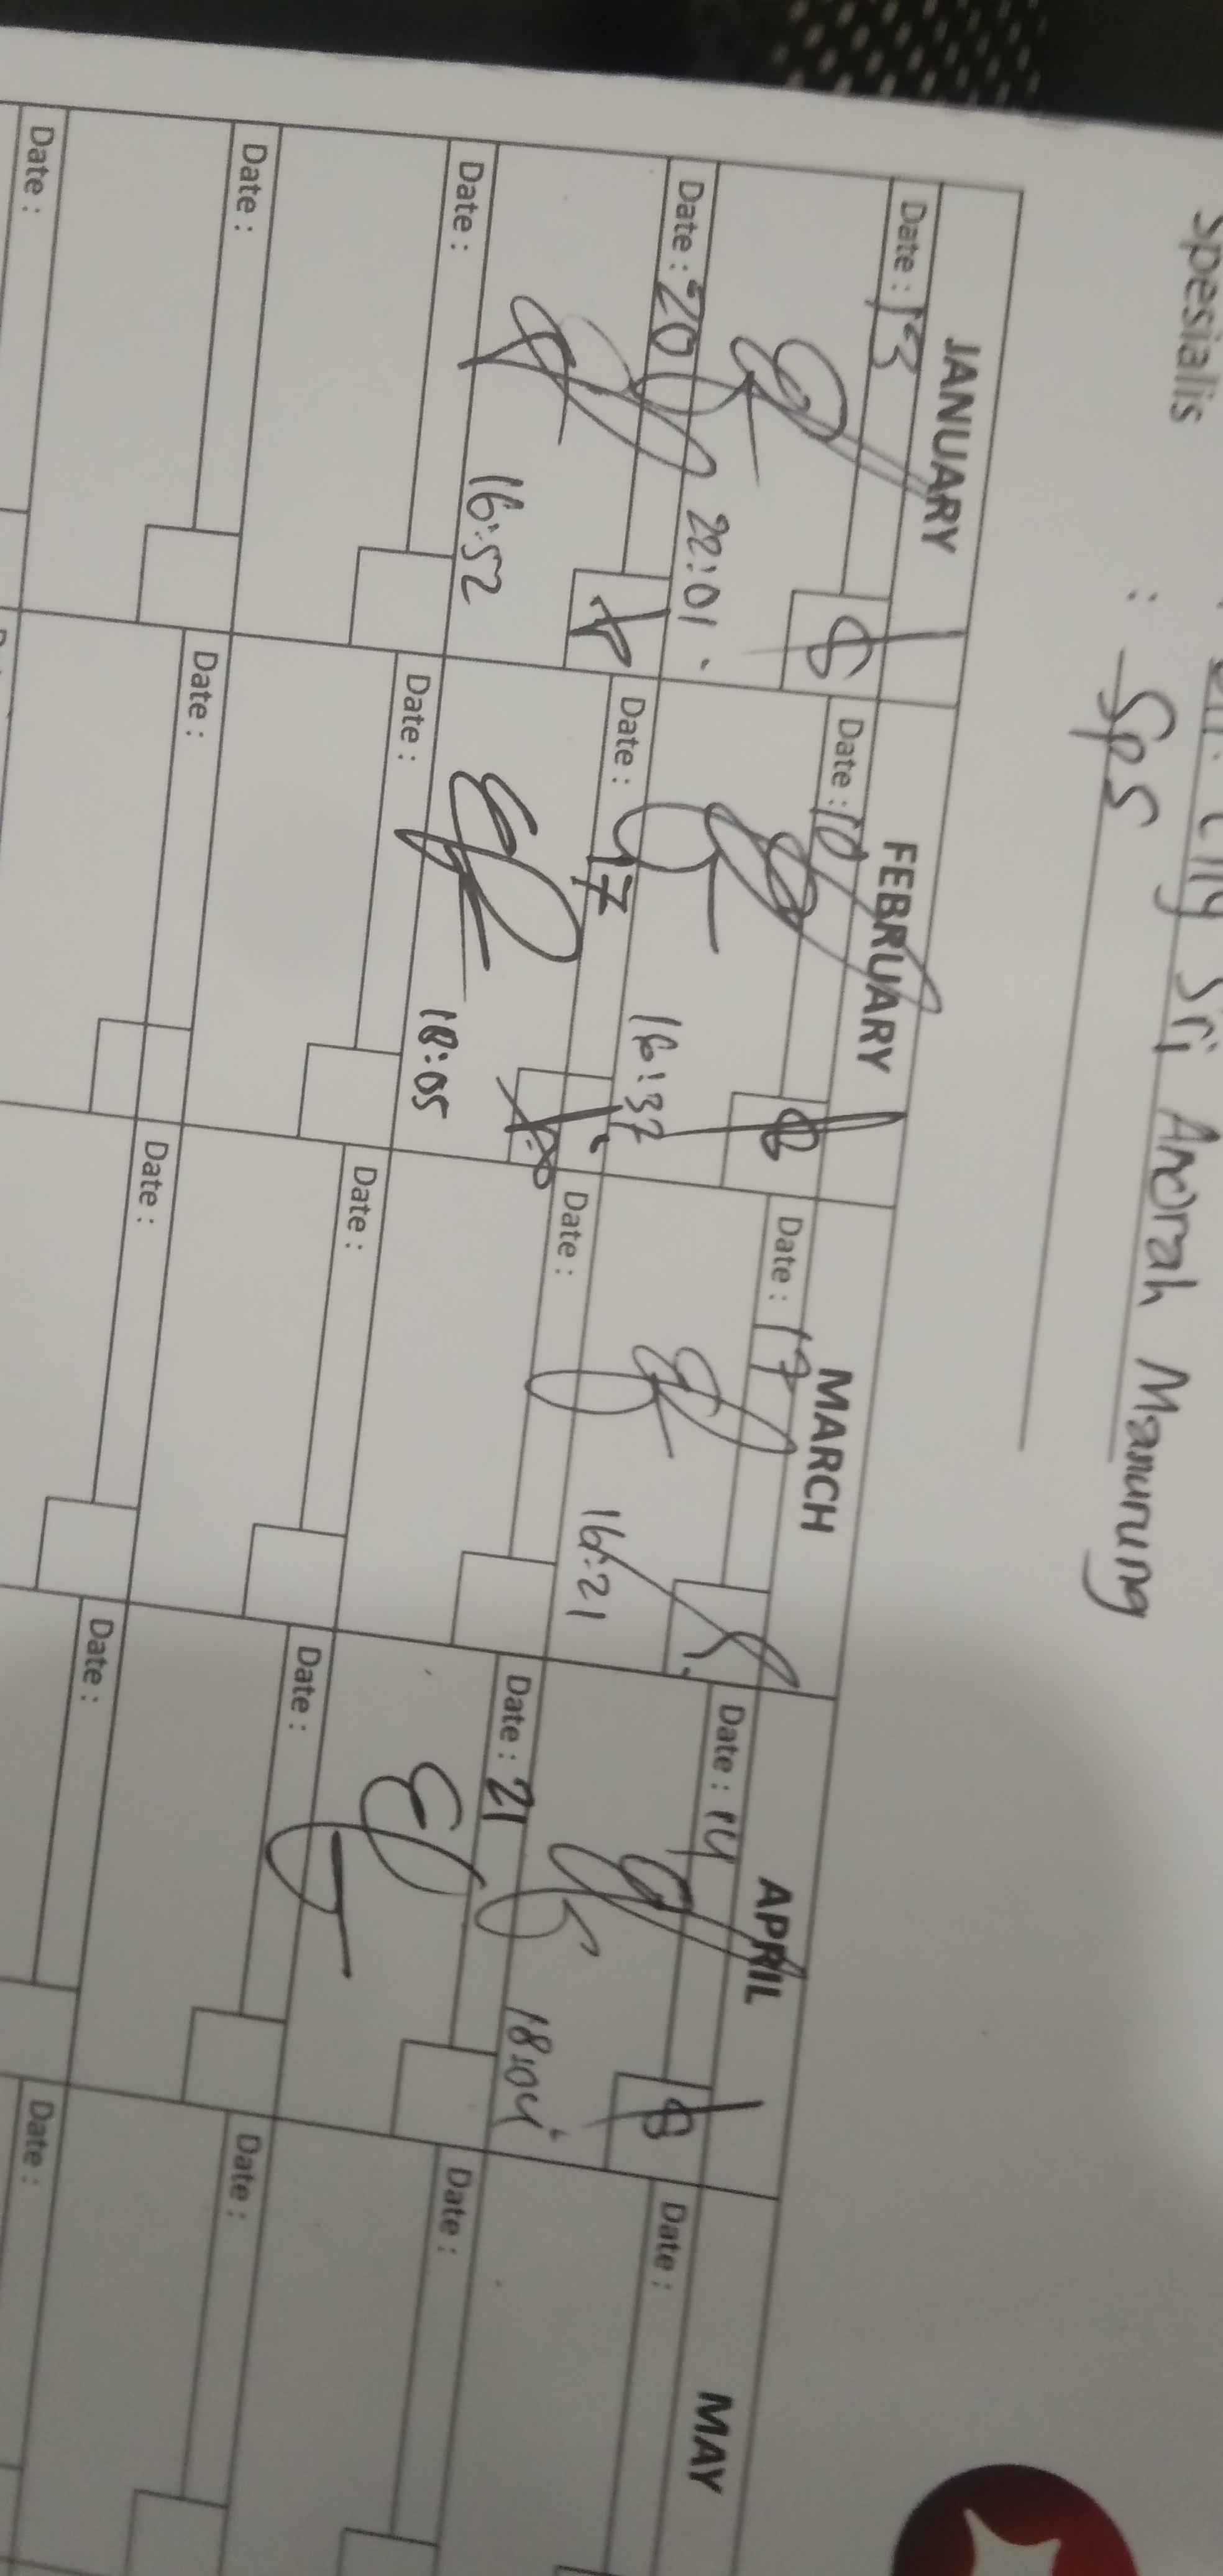 Sri Andrah Manurung
Spesialis : Sps
JANUARY FEBRUARY MARCH APRIL MAY
Date : 13 Date : 10 Date : 17 Date : 14 Date :
22:01 16:37 16:21 18:04
Date : 20 Date : 17 Date : Date : 21 Date :
16:52 18:05
Date : Date : Date : Date : Date :
Date : Date : Date : Date : Date :
Date :